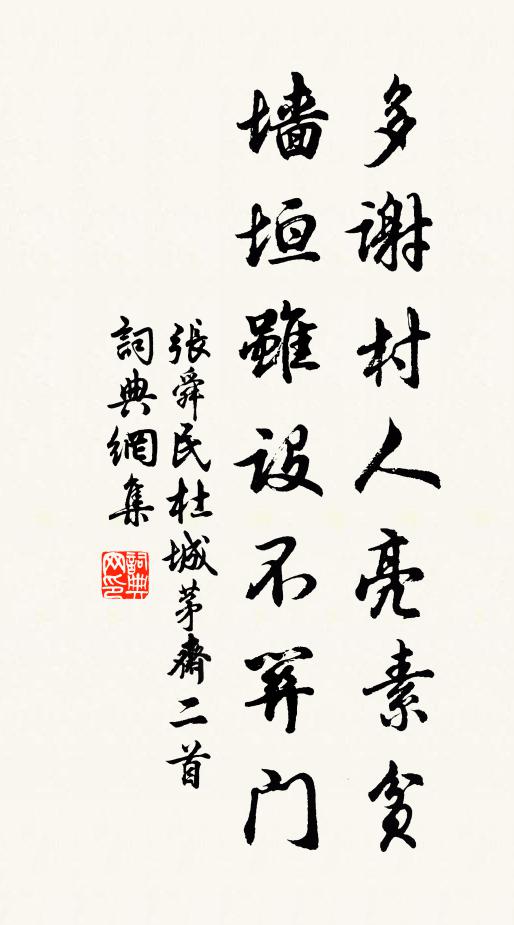 多谢村人亮素贫
墙垣雖设不關门
張舜民杜城茅齋二首
詞典網集
詞典网印